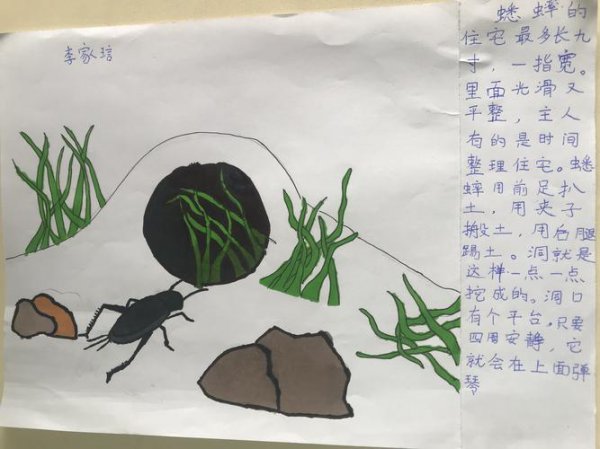 李家琂
蟋蟀的
住宅最多长九
寸，一指宽。
里面光滑又
平整，主人
有的是时间
整理住宅。蟋
蟀用前足扒
土，用夹子
搬土，用后腿
踢土。洞就是
这样一点一点
挖成的。洞口
有个平台，只要
四周安静，它
就会在上面弹
琴